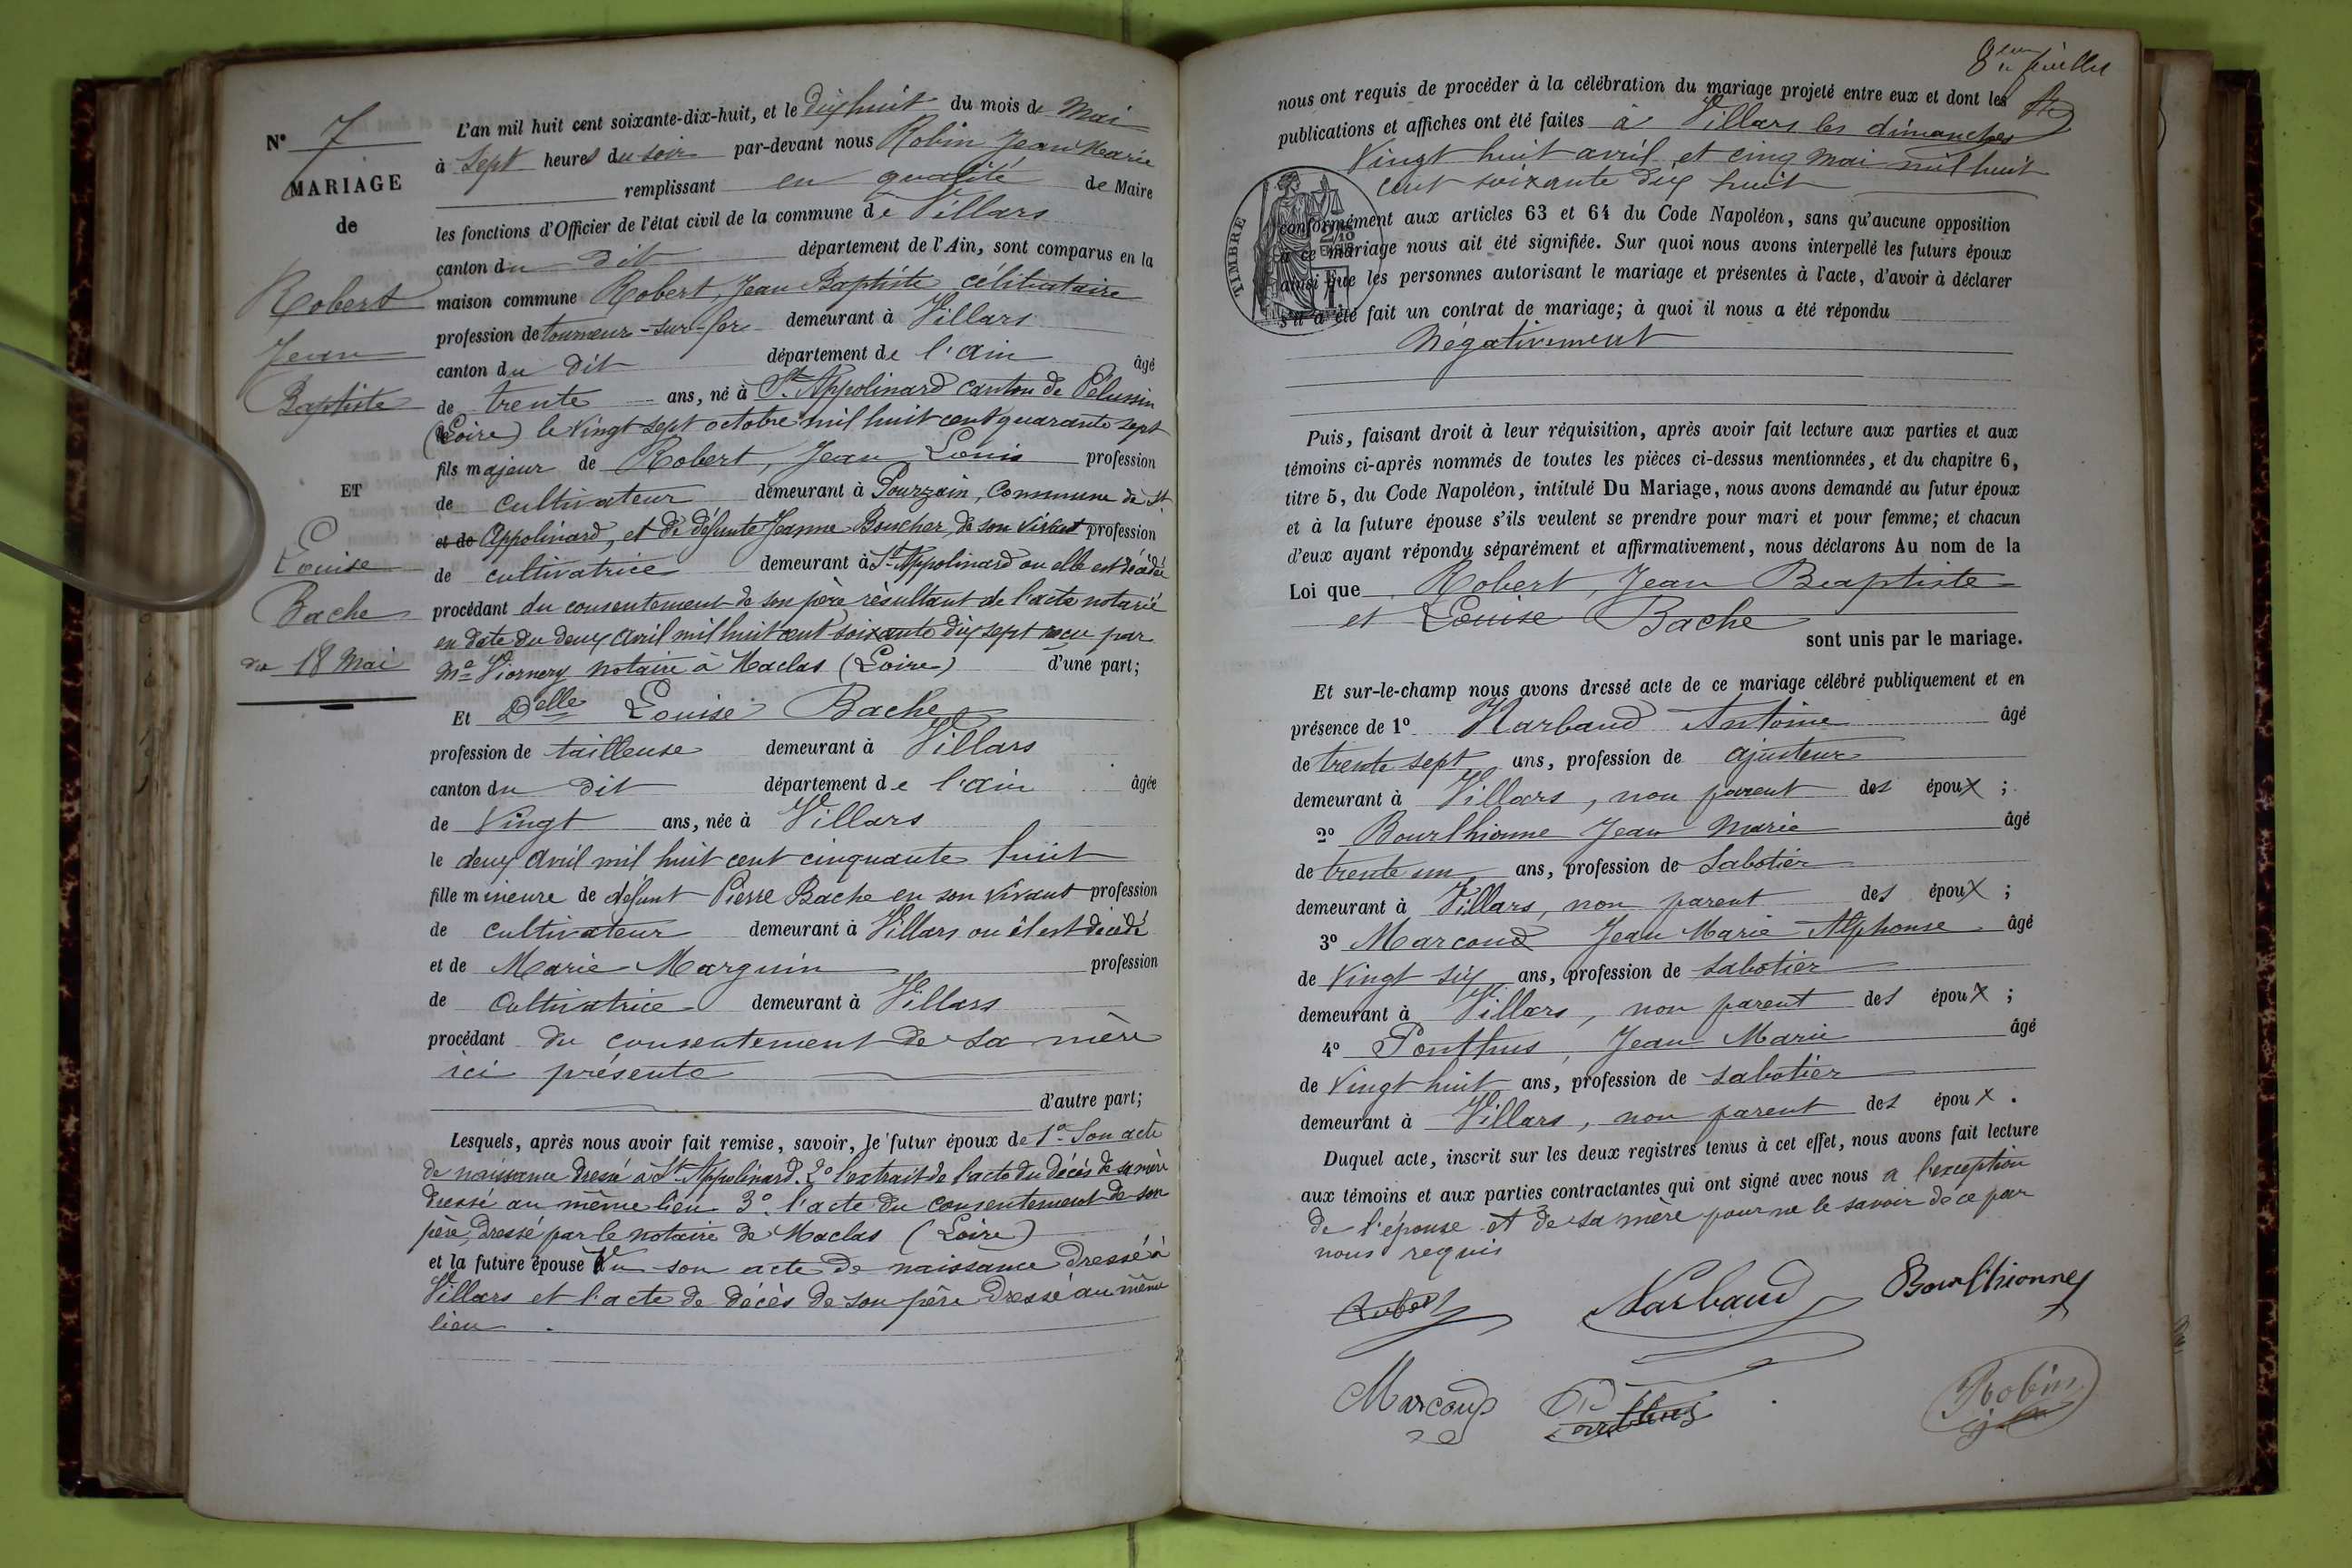 N° 7
MARIAGE
de
Robert
Jean
Baptiste
ET
Louise
Bache
du 18 Mai
L'an mil huit cent soixante-dix-huit, et le dix huit du mois de Mai
à sept heures du soir par-devant nous Robin Jean Marie
remplissant en qualité de Maire
les fonctions d'Officier de l'état civil de la commune de Villars
canton du dit département de l'Ain, sont comparus en la
maison commune Robert, Jean Baptiste célibataire
profession de tourneur-sur-fer demeurant à Villars
canton du dit département de l'ain âgé
de trente ans, né à St. Appolinard canton de Pélussin
(Loire) le vingt sept octobre mil huit cent quarante sept
fils majeur de Robert, Jean Louis profession
de cultivateur demeurant à Pourzain, Commune de St.
et de Appolinard, et de défunte Jeanne Boucher, de son vivant profession
de cultivatrice demeurant à St. Appolinard ou elle est décédée
procédant du consentement de son père résultant de l'acte notarié
en date du deux avril mil huit cent soixante dix sept reçu par
Me Viornery notaire à Maclas (Loire) d'une part;
Et Delle Louise Bache
profession de tailleuse demeurant à Villars
canton du dit département de l'ain âgée
de vingt ans, née à Villars
le deux avril mil huit cent cinquante huit
fille mineure de défunt Pierre Bache en son vivant profession
de cultivateur demeurant à Villars ou il est décédé
et de Marie Marguin profession
de cultivatrice demeurant à Villars
procédant du consentement de sa mère
ici présente
d'autre part;
Lesquels, après nous avoir fait remise, savoir, le futur époux de 1° Son acte
de naissance dressé à St. Appolinard. 2° l'extrait de l'acte du décès de sa mère
dressé au même lieu 3° l'acte du consentement de son
père, dressé par le notaire de Maclas (Loire)
et la future épouse de son acte de naissance dressé à
Villars et l'acte de décès de son père dressé au même
lieu.
8eme feuillet
nous ont requis de procéder à la célébration du mariage projeté entre eux et dont les
publications et affiches ont été faites à Villars les dimanches
vingt huit avril et cinq mai mil huit
cent soixante dix huit
TIMBRE
conformément aux articles 63 et 64 du Code Napoléon, sans qu'aucune opposition
à ce mariage nous ait été signifiée. Sur quoi nous avons interpellé les futurs époux
ainsi que les personnes autorisant le mariage et présentes à l'acte, d'avoir à déclarer
s'il a été fait un contrat de mariage; à quoi il nous a été répondu
Négativement
Puis, faisant droit à leur réquisition, après avoir fait lecture aux parties et aux
témoins ci-après nommés de toutes les pièces ci-dessus mentionnées, et du chapitre 6,
titre 5, du Code Napoléon, intitulé Du Mariage, nous avons demandé au futur époux
et à la future épouse s'ils veulent se prendre pour mari et pour femme; et chacun
d'eux ayant répondu séparément et affirmativement, nous déclarons Au nom de la
Loi que Robert, Jean Baptiste
et Louise Bache
sont unis par le mariage.
Et sur-le-champ nous avons dressé acte de ce mariage célébré publiquement et en
présence de 1° Narbaud Antoine âgé
de trente sept ans, profession de ajusteur
demeurant à Villars, non parent des époux ;
2° Bourlhionne Jean Marie âgé
de trente un ans, profession de sabotier
demeurant à Villars, non parent des époux ;
3° Marcoud Jean Marie Alphonse âgé
de vingt six ans, profession de sabotier
demeurant à Villars, non parent des époux ;
4° Ponthus, Jean Marie âgé
de vingt huit ans, profession de sabotier
demeurant à Villars, non parent des époux .
Duquel acte, inscrit sur les deux registres tenus à cet effet, nous avons fait lecture
aux témoins et aux parties contractantes qui ont signé avec nous a l'exception
de l'épouse et de sa mère pour ne le savoir de ce par
nous requis
Robert Narbaud Bourlhionne
Marcoud Ponthus Robin